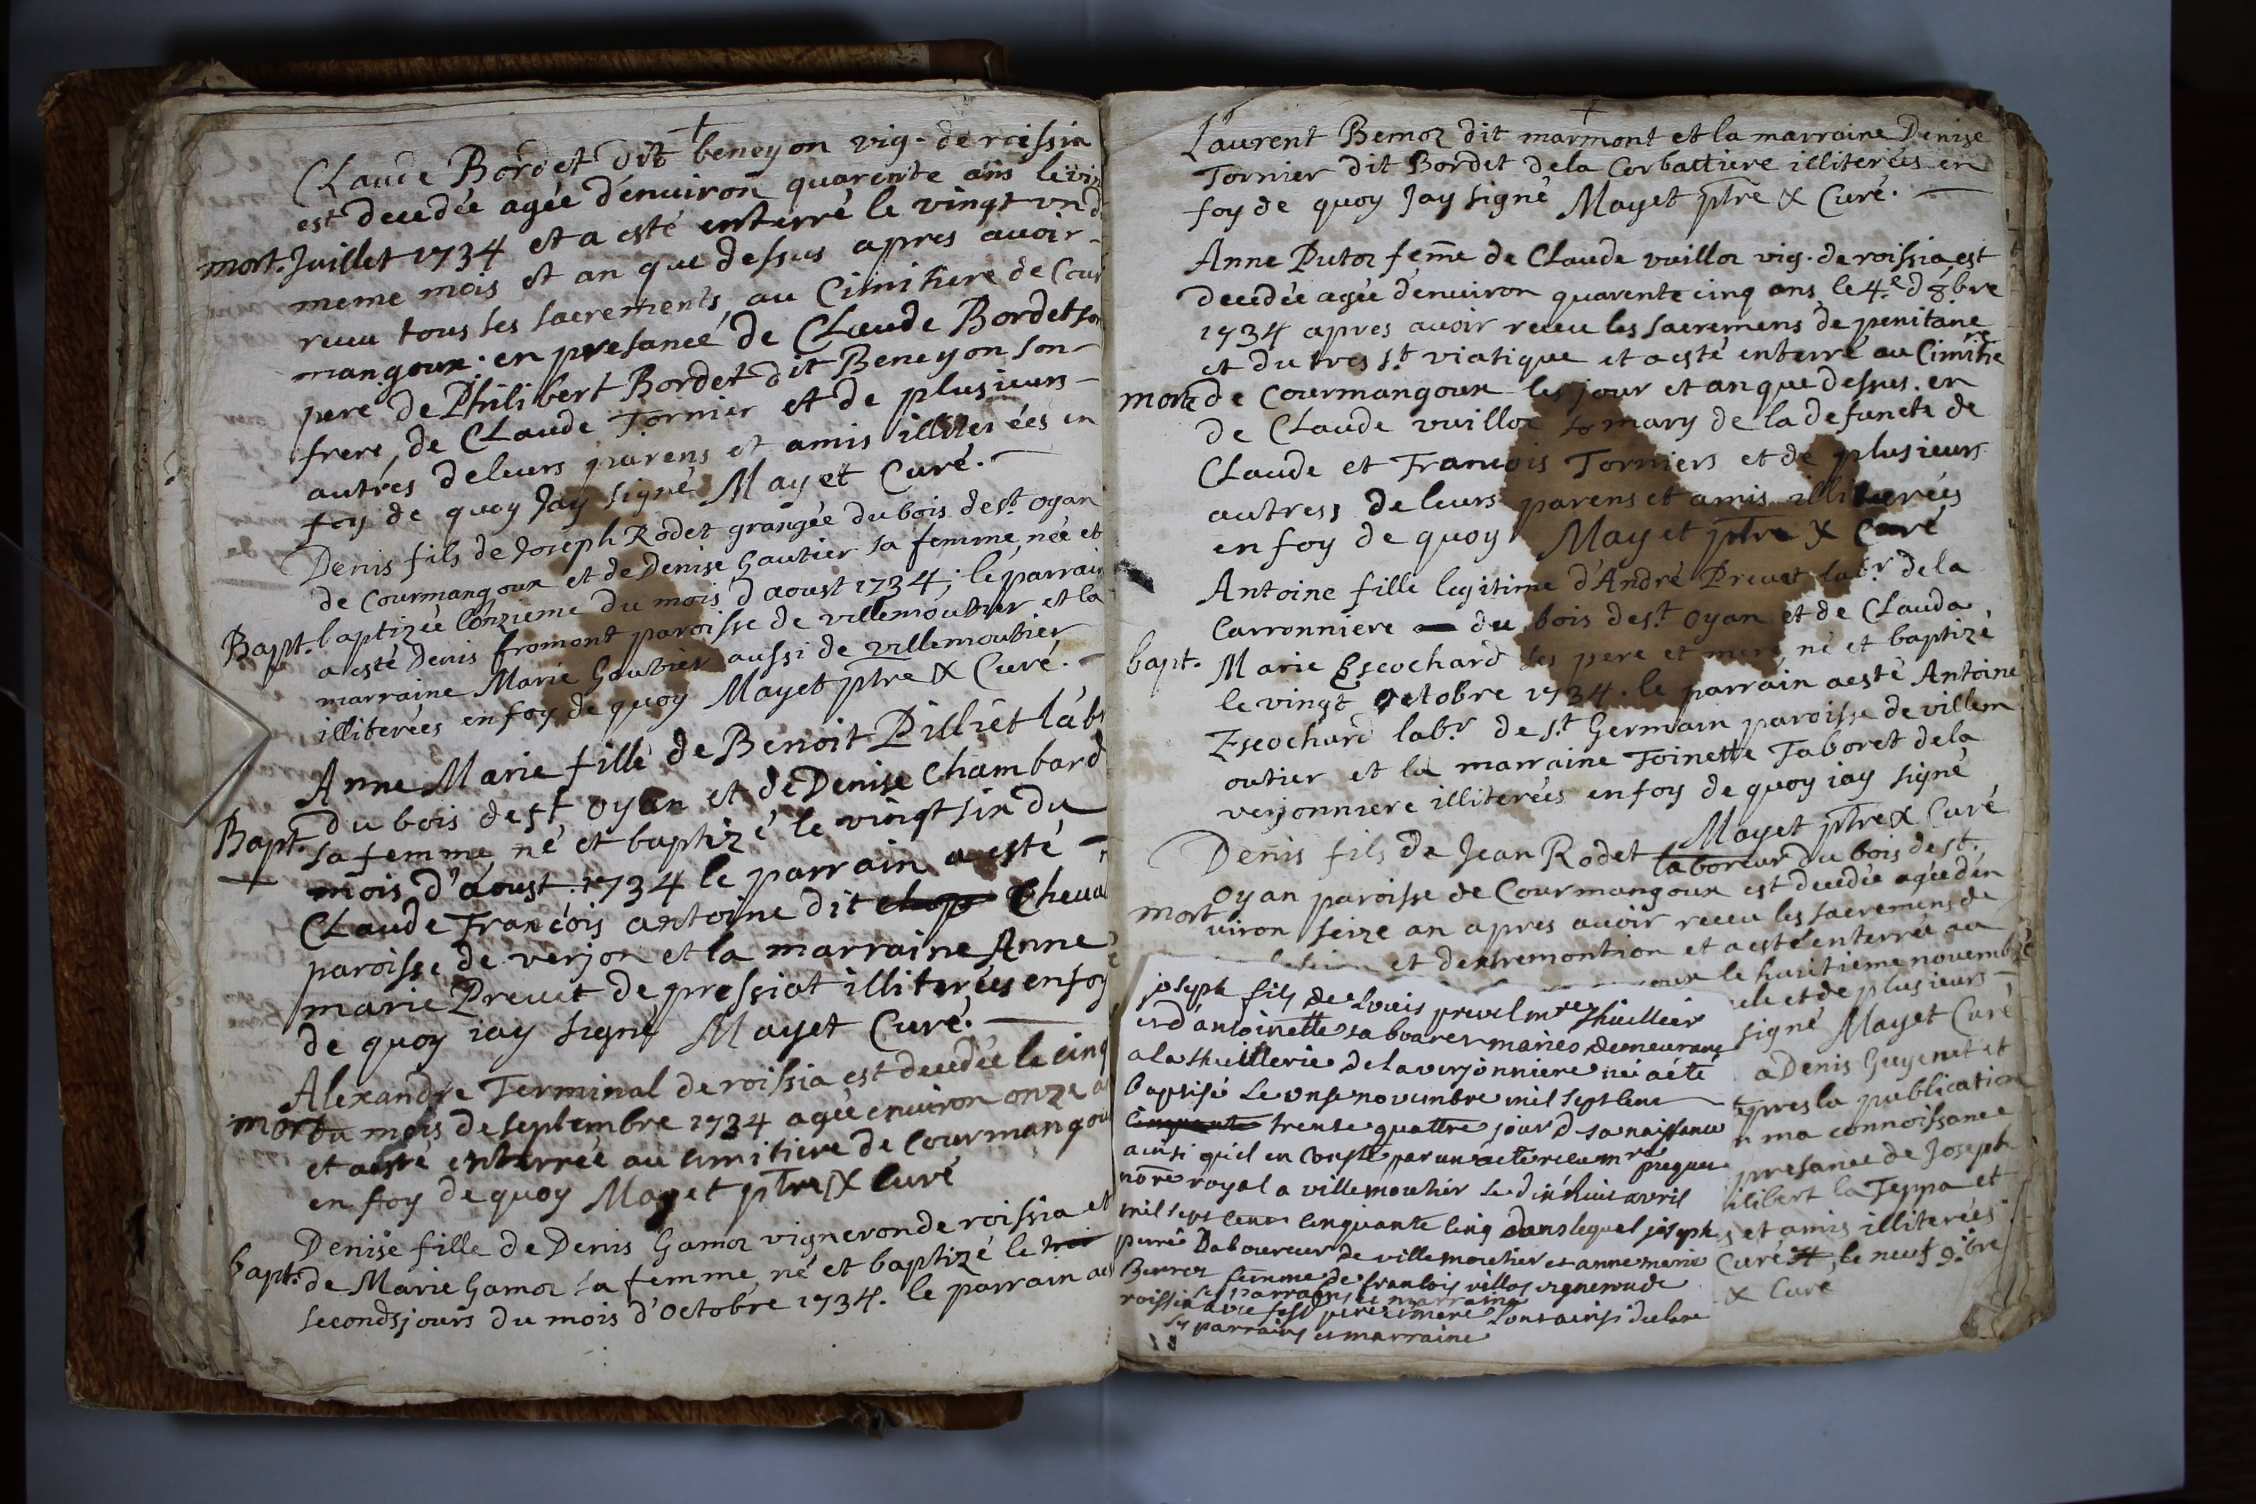 Claude Bordet dit beneyon vig. de roissia
est decedée agée d'enuiron quarente ans le
mort. Juillet 1734 et a esté enterré le vingt
meme mois et an que dessus apres auoir
receu tous ses sacrements au Cimitiere de Cour
mangoux. en presance de CLaude Bordet son
pere de Philibert Bordet dit Beneyon son
frere, de CLaude Tornier et de plusieurs
autres de leurs parens et amis illiterées en
foy de quoy Jay signé Mayet Curé.
Denis fils de Joseph Rodet grangée du bois de st. oyan
de Courmangoux et de Denise Gautier sa femme, née et
Bapt. baptizée l'onzieme du mois d'aoust 1734; le parrain
a esté Denis fromont paroisse de villemoutier et la
marraine Marie Gautier aussi de villemoutier
illiterées en foy de quoy Mayet ptre & Curé.
Anne Marie fille de Benoit Pilliet lab
du bois de st oyan et de Denise Chambard
Bapt. sa femme né et baptizé le vingt six du
mois d'aoust 1734 le parrain a esté
CLaude François antoine dit chap Cheua
paroisse de verjon et la marraine Anne
marie Preuet de pressiat illiterées en foy
de quoy iay signé Mayet Curé.
Alexandre Terminal de roissia est decedée le cinq
mort du mois de septembre 1734 agée enuiron onze a
et a esté enterrée au simitiere de Courmangou
en foy de quoy Mayet ptre & Curé
Denise fille de Denis Gamoz vigneron de roissia et
bapt. de Marie Gamoz sa femme, né et baptizé le troi
seconds jours du mois d'octobre 1734. le parrain a
Laurent Bemoz dit marmont et la marraine Denise
Tornier dit Bordet de la Corbattiere illiterées en
foy de quoy Jay signé Mayet ptre & Curé.
Anne Putoz feme de CLaude vuilloz vig. de roissia est
decedée agée d'enuiron quarente cinq ans le 4.e d 8bre
1734 apres auoir receu les sacremens de penitane
et du tres st. viatique et a esté enterré au Cimitre
morte de Courmangoux les jour et an que dessus. en
de CLaude vuilloz so mary de la defuncte de
CLaude et François Torniers et de plusieurs
autress de leurs parens et amis illiterées
en foy de quoy Mayet ptre & Curé
Antoine fille legitime d'André Preuet labr. de la
Carronniere du bois de st. oyan et de CLauda
bapt. Marie Escochard ses pere et mere, né et baptizé
le vingt octobre 1734. le parrain a esté Antoine
Escochard labr. de st. Germain paroisse de villem
outier et la marraine Toinette Taboret de la
verjonniere illiterées en foy de quoy iay signé
Mayet ptre & Curé
Denis fils de Jean Rodet laboreur du bois de st.
oyan paroisse de Courmangoux est decedée agée d'en
mort uiron seize an apres auoir receu les sacremens de
et dextremontion et a esté enterrée au
le huitieme novembre
et de plusieurs
signé Mayet Curé
a Denis Guyenet et
apres la publication
n ma connoissance
presance de Joseph
ilibert la Teppa et
s et amis illiterées
Curé le neuf 9.bre
& Curé
joseph fils de Louis prevel mre thuillier
et d'antoinette tabourer mariés demeurans
a la thuillerie de la verjonniere né a été
baptisé Le onse novembre mil sept cent
cinquante trente quattre jour d sa naissance
ainsi qu'il en Conste par un acte receu mre preguer
nore royal a villemoutier le dix huit avril
mil sept cent cinquante cinq dans lequel joseph
Laboureur de villemoutier et anne marie
femme de francois villos vigneron de
roissia
ses parrains et marraine
avec ses pere et mere l'ont ainsi declare
Sy parrains et marraine